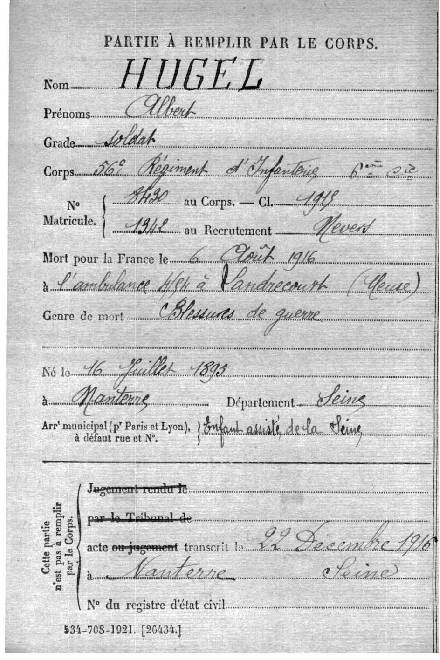 PARTIE À REMPLIR PAR LE CORPS.
Nom HUGEL
Prénoms Albert
Grade soldat
Corps 56e Régiment d'Infanterie 6ème Cie
N° Matricule. { 8430 au Corps. — Cl. 1913
1942 au Recrutement Nevers
Mort pour la France le 6 Août 1916
à l'ambulance à Landrecourt (Meuse)
Genre de mort Blessures de guerre
Né le 16 Juillet 1893
à Nanterre Département Seine
Arrt municipal (pr Paris et Lyon), à défaut rue et N°. { Enfant assisté de la Seine
Cette partie n'est pas à remplir par le Corps.
Jugement rendu le
par le Tribunal de
acte ou jugement transcrit le 22 Décembre 1916
à Nanterre Seine
N° du registre d'état civil
534-708-1921. [26434.]